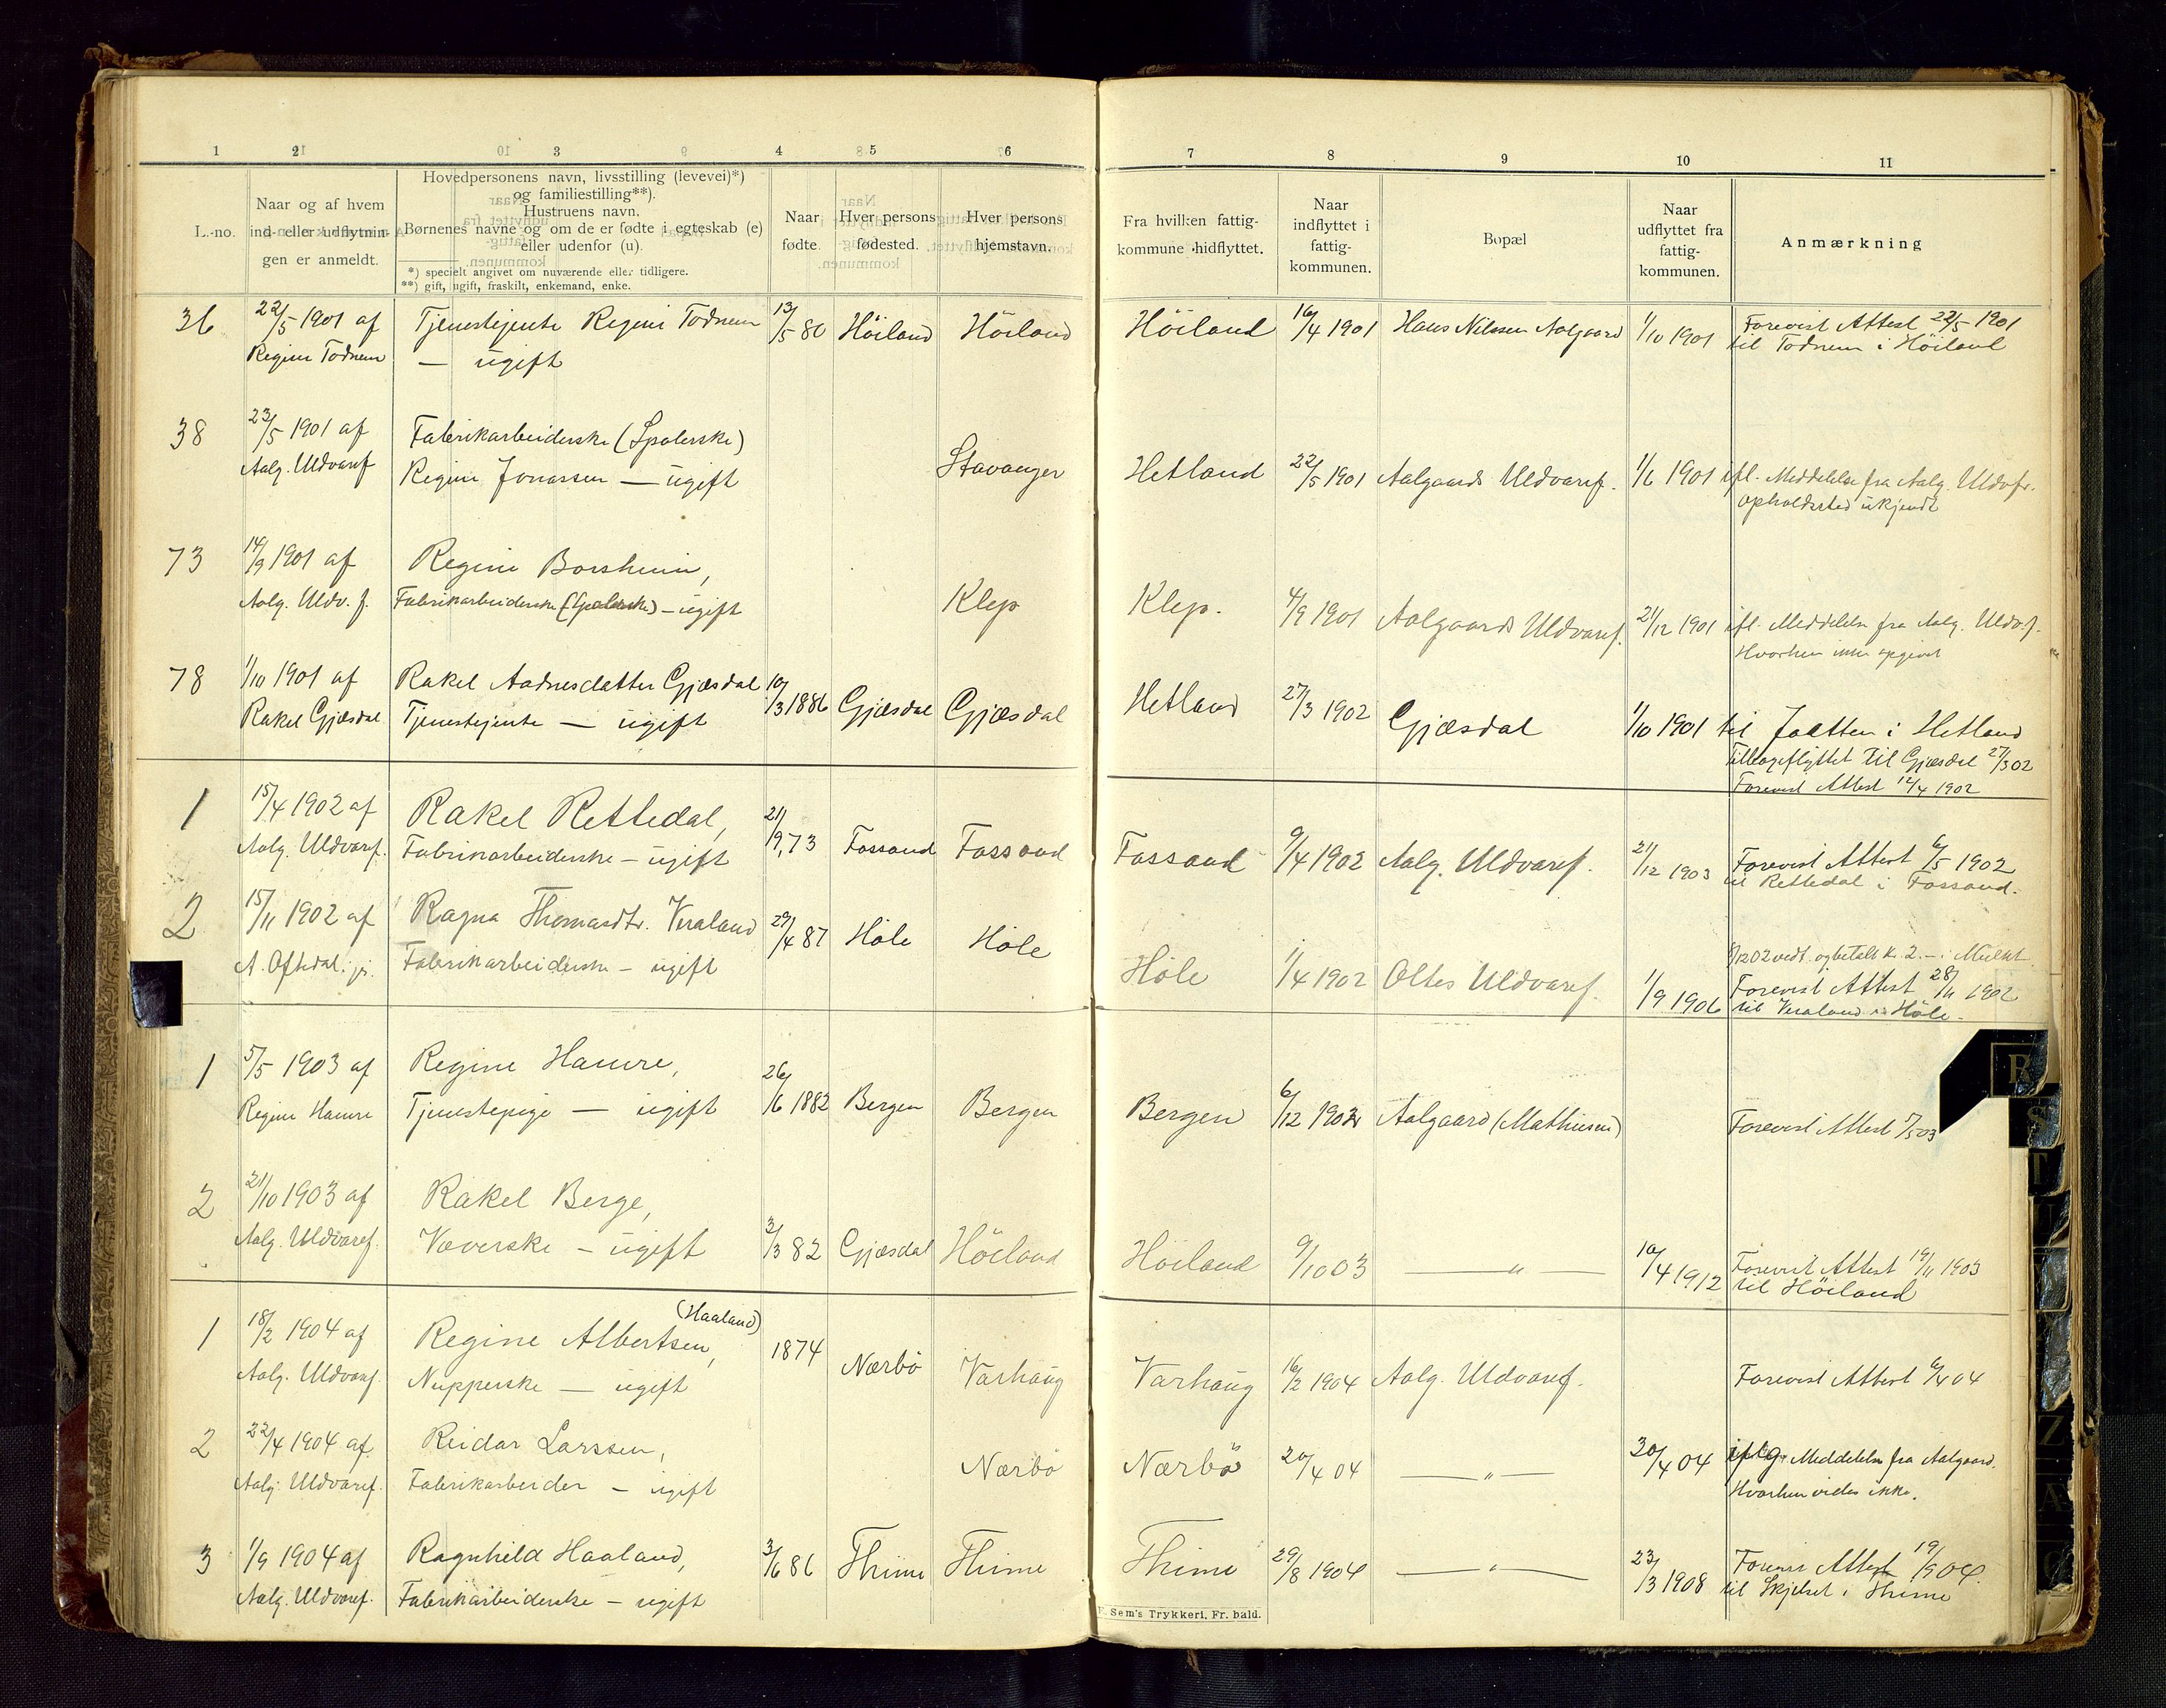 1 2 3 4 5 6 7 8 9 10 11
L.-no.
Naar og af hvem
ind- eller udflytnin-
gen er anmeldt.
Hovedpersonens navn, livsstilling (levevei)*)
og familiestilling**).
Hustruens navn.
Børnenes navne og om de er fødte i egteskab (e)
eller udenfor (u).
*) specielt angivet om nuværende eller tidligere.
**) gift, ugift, fraskilt, enkemand, enke.
Naar
fødte.
Hver persons
fødested.
Hver persons
hjemstavn.
Fra hvilken fattig-
kommune hidflyttet.
Naar
indflyttet i
fattig-
kommunen.
Bopæl
Naar
udflyttet fra
fattig-
kommunen.
Anmærkning
36 22/5 1901 af Tjenestejente Regine Todnem 13/5 80 Höiland Höiland Höiland 16/4 1901 Hans Nilssen Aalgaard 1/10 1901 Forevist Attest 22/5 1901
Regine Todnem — ugift til Todnem i Höiland
38 23/5 1901 af Fabrikarbeiderske (Spolerske)
Aalg. Uldvaref Regine Jonassen — ugift Stavanger Hetland 22/5 1901 Aalgaards Uldvaref. 1/6 1901 ifl. Meddelelse fra Aalg. Uldvf.
Opholdssted ukjendt
73 14/9 1901 af Regine Borsheim,
Aalg. Uldv. f. Fabrikarbeiderske (Spolerske) — ugift Klep Klep. 4/9 1901 Aalgaards Uldvaref. 21/12 1901 ifl. Meddelelse fra Aalg. Uldv.f.
Hvorhen ikke opgivet
78 1/10 1901 af Rakel Aadnesdatter Gjæsdal 10/3 1886 Gjæsdal Gjæsdal Hetland 27/3 1902 Gjæsdal 1/10 1901 til Jaatten i Hetland
Rakel Gjæsdal Tjenestejente — ugift Tilbageflyttet til Gjæsdal 27/3 02
Forevist Attest 12/4 1902
1 15/4 1902 af Rakel Rettedal, 21/9 73 Fossand Fossand Fossand 9/4 1902 Aalg. Uldvaref. 21/12 1903 Forevist Attest 6/5 1902
Aalg. Uldvaref. Fabrikarbeiderske — ugift til Rettedal i Fossand.
2 15/11 1902 af Ragna Thomasdtr. Veraland 29/4 87 Höle Höle Höle 1/4 1902 Oltes Uldvaref. 1/9 1906 8/12 02 vedt. og betalt k. 2.— i Mulkt
A. Oftedal. jr. Fabrikarbeiderske — ugift Forevist Attest 28/11 1902
til Veraland i Höle.
1 5/5 1903 af Regine Hamre, 26/6 1882 Bergen Bergen Bergen 6/12 1902 Aalgaard (Mathiesen) Forevist Attest 5/5 03
Regine Hamre Tjenestepige — ugift
2 21/10 1903 af Rakel Berge,
Aalg. Uldvaref. Væverske — ugift 3/3 82 Gjæsdal Höiland Höiland 9/10 03 — " — 10/4 1912 Forevist Attest 19/11 1903
til Höiland
(Haaland)
1 18/2 1904 af Regine Albertsen, 1874 Nærbö Varhaug Varhaug 16/2 1904 Aalg. Uldvaref. Forevist Attest 6/4 04
Aalg. Uldvaref. Nupperske — ugift
2 22/4 1904 af Reidar Larssen, Nærbö Nærbö 20/4 04 — " — 30/4 04 iflg. Meddelelse fra Aalgaard.
Aalg. Uldvaref. Fabrikarbeider — ugift Hvorhen vides ikke.
3 1/9 1904 af Ragnhild Haaland, 3/6 86 Thime Thime Thime 29/8 1904 — " — 23/3 1908 Forevist Attest 19/9 04.
Aalg. Uldvaref. Fabrikarbeiderske — ugift til Skjelset i Thime
Sem's Trykkeri, Fr. hald.
R
S
T
U
Z
Æ